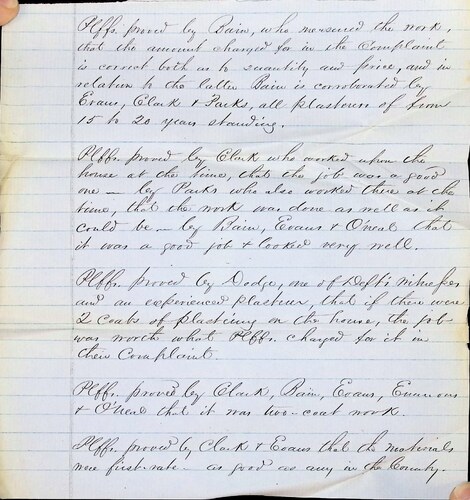 Plffs. proved by Bain, who measured the work,
that the amount charged for in the Complaint
is correct both as to quantity and price, and in
relation to the latter Bain is corroborated by
Evans, Clark & Parks, all plasterers of from
15 to 20 years standing.
Plffs. proved by Clark who worked upon the
house at the time, that the job was a good
one — by Parks who also worked there at the
time, that the work was done as well as it
could be — by Bain, Evans & O'neal that
it was a good job & looked very well.
Plffs. proved by Dodge, one of Deft's witnesses
and an experienced plasterer, that if there were
2 coats of plastering on the house, the job
was worth what Plffs. charged for it in
their Complaint.
Plffs. proved by Clark, Bain, Evans,
& O'neal that it was two-coat work.
Plffs. proved by Clark & Evans that the materials
were first-rate — as good as any in the County.